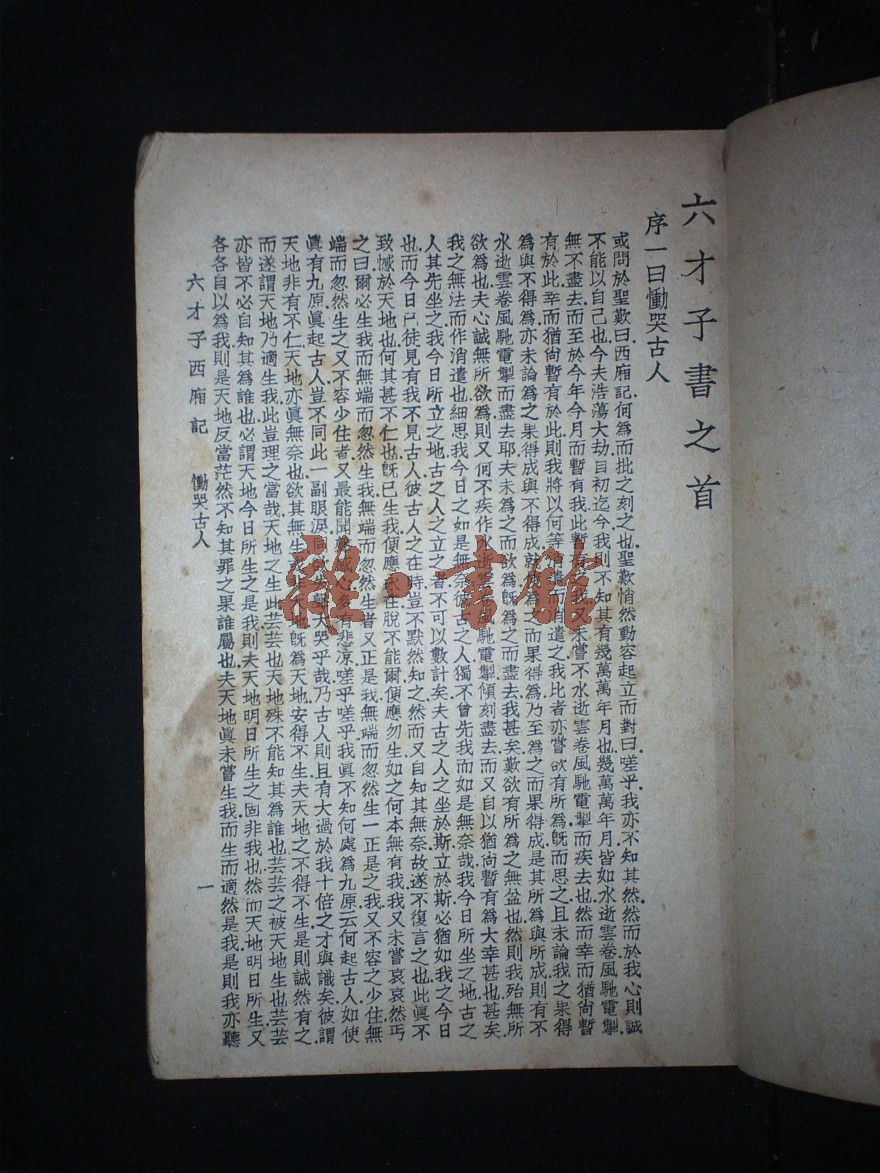 六才子書之首
序一曰慟哭古人
或問於聖歎曰西廂記何爲而批之刻之也聖歎悄然動容起立而對曰嗟乎我亦不知其然然而於我心則誠
不能以自已也今夫浩蕩大劫自初迄今我則不知其有幾萬萬年月也幾萬萬年月皆如水逝雲卷風馳電掣
無不盡去而至於今年今月而暫有我此暫有之我又未嘗不水逝雲卷風馳電掣而疾去也然而幸而猶尚暫
有於此幸而猶尚暫有於此則我將以何等消遣而消遣之我比者亦嘗欲有所爲旣而思之且未論我之果得
爲與不得爲亦未論爲之果得成與不得成就使爲之而果得爲乃至爲之而果得成是其所爲與所成則有不
水逝雲卷風馳電掣而盡去耶夫未爲之而欲爲旣爲之而盡去我甚矣歎欲有所爲之無益也然則我殆無所
欲爲也夫我誠無所欲爲則又何不疾作水逝雲卷風馳電掣傾刻盡去而又自以猶尚暫有爲大幸甚也甚矣
我之無法而作消遣也細思我今日之如是無奈彼古之人獨不曾先我而如是無奈哉我今日所坐之地古之
人其先坐之我今日所立之地古之人之立之者不可以數計矣夫古之人之坐於斯立於斯必猶如我之今日
也而今日已徒見有我不見古人彼古人之在時豈不默然知之然而又自知其無奈故遂不復言之也此眞不
致憾於天地也何其甚不仁也旣已生我便應永在脫不能爾便應勿生如之何本無有我我又未嘗哀哀然丐
之曰爾必生我而無端而忽然生我無端而忽然生者又正是我無端而忽然生一正是之我又不容之少住無
端而忽然生之又不容少住者又最能聞聲感心多有悲涼嗟乎嗟乎我眞不知何處爲九原云何起古人如使
眞有九原眞起古人豈不同此一副眼淚同欲失聲大哭乎哉乃古人則且有大過於我十倍之才與識矣彼謂
天地非有不仁天地亦眞無奈也欲其無生或非天地旣爲天地安得不生夫天地之不得不生是則誠然有之
而遂謂天地乃適生我此豈理之當哉天地之生此芸芸也天地殊不能知其爲誰也芸芸之被天地生也芸芸
亦皆不必自知其爲誰也必謂天地今日所生之是我則夫天地明日所生之固非我也然而天地明日所生又
各各自以爲我則是天地反當茫然不知其罪之果誰屬也夫天地眞未嘗生我而生而適然是我是則我亦聽
六才子西廂記　慟哭古人　一
雜·書館